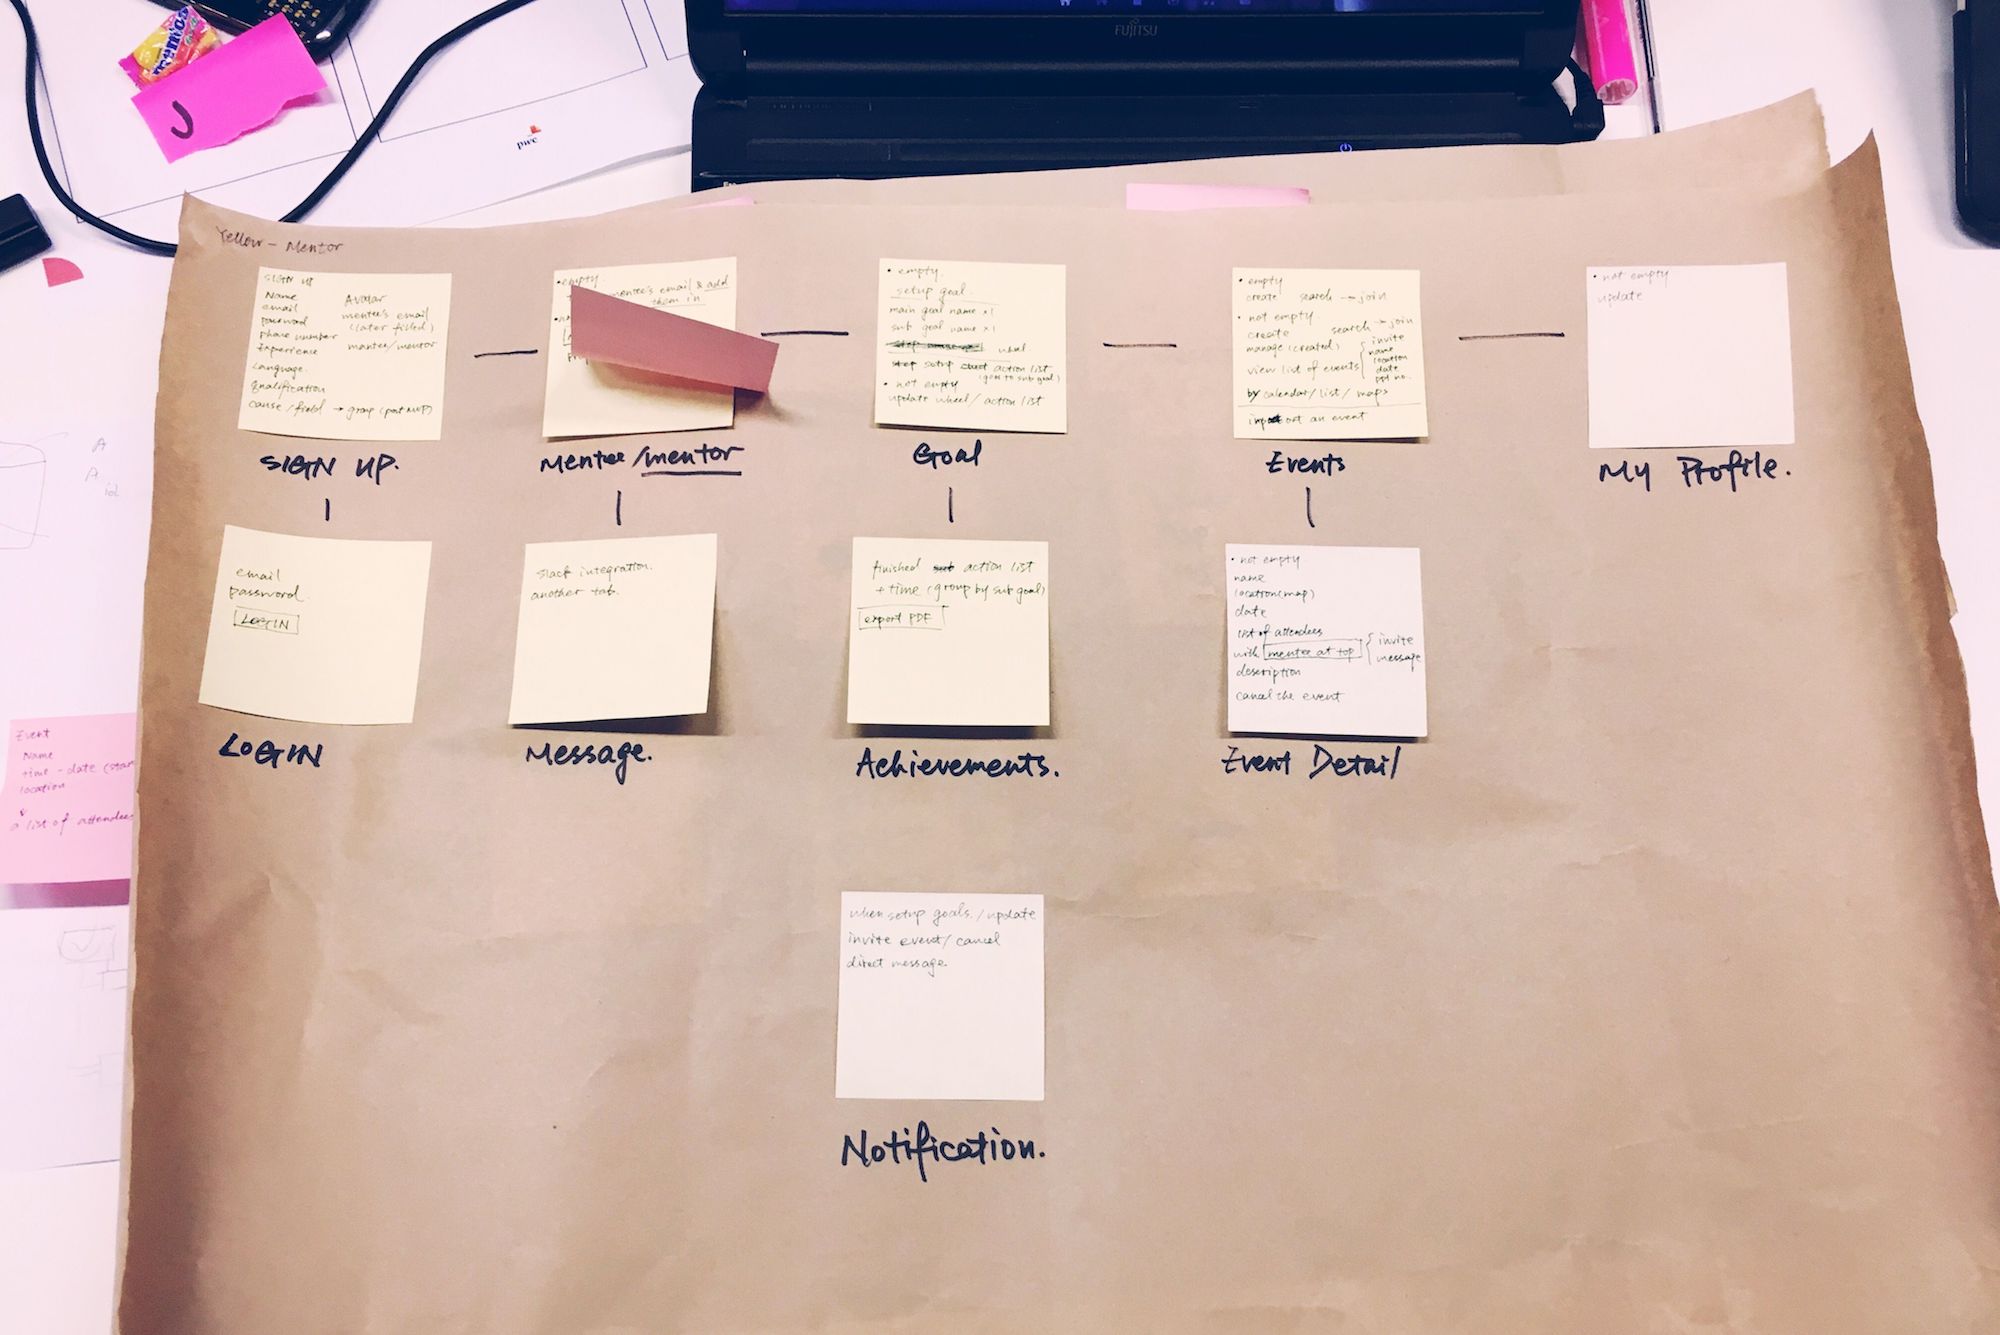 FUJITSU
mentos
J
pwc
Yellow - Mentor
SIGN UP
Name
email
password
phone number
Experience
Language.
qualification
cause / field → group (post MVP)
Avatar
mentee's email
(later filled)
mentee/mentor
SIGN UP.
• empty.
mentee's email & add
them in
Mentee/mentor
• empty.
setup goal.
main goal name x1
sub goal name x1
wheel
setup action list
(goes to sub goal)
• not empty
update wheel / action list
Goal
• empty
create search → join
• not empty.
create search → join
manage (created)
view list of events
invite
name
location
date
ppl no.
by calendar / list / maps
an event
Events
• not empty
update
My Profile.
email
password.
LOGIN
LOGIN
slack integration.
another tab.
Message.
finished action list
+ time (group by sub goal)
export PDF
Achievements.
• not empty
name
location (map)
date
list of attendees
with mentee at top
invite
message
description
cancel the event
Event Detail
when setup goals. / update
invite event / cancel
direct message.
Notification.
Event
Name
time - date (star
location
a list of attendees